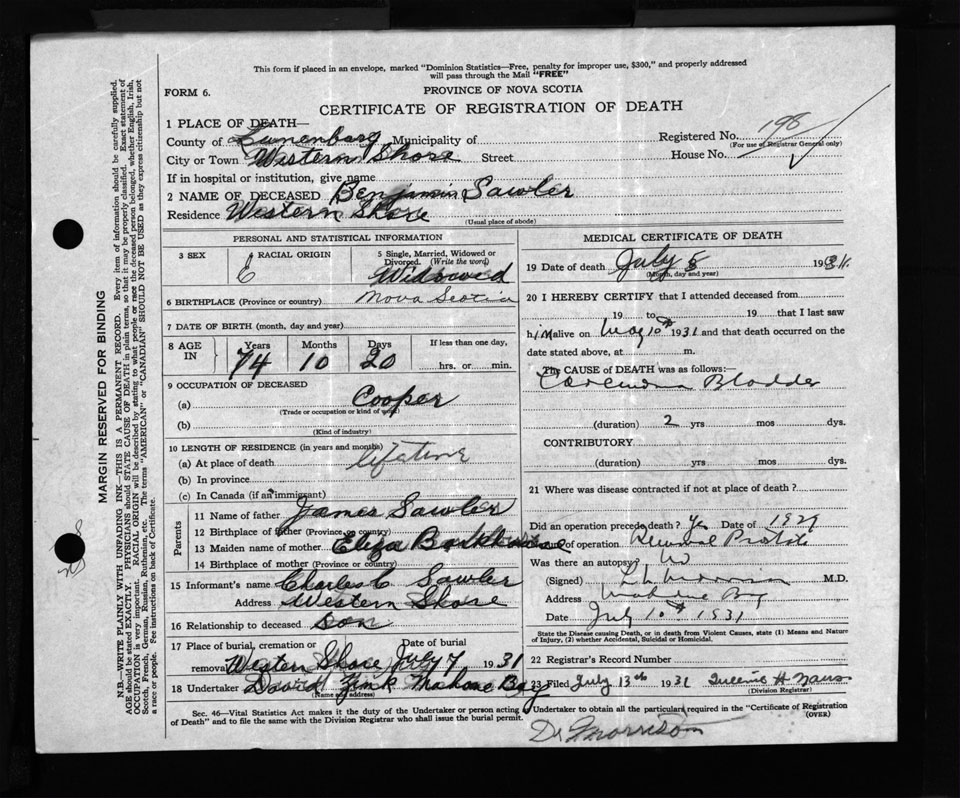 This form if placed in an envelope, marked "Dominion Statistics—Free, penalty for improper use, $300," and properly addressed
will pass through the Mail "FREE"
FORM 6.
PROVINCE OF NOVA SCOTIA
CERTIFICATE OF REGISTRATION OF DEATH
1 PLACE OF DEATH—
County of Lunenburg Municipality of
Registered No. 198
(For use of Registrar General only)
City or Town Western Shore Street
House No.
If in hospital or institution, give name
2 NAME OF DECEASED Benjamin Sawler
Residence Western Shore
(Usual place of abode)
PERSONAL AND STATISTICAL INFORMATION
3 SEX
4 RACIAL ORIGIN
E
5 Single, Married, Widowed or
Divorced. (Write the word)
Widowed
6 BIRTHPLACE (Province or country) Nova Scotia
7 DATE OF BIRTH (month, day and year)
8 AGE IN
Years Months Days If less than one day,
74 10 20 hrs. or min.
9 OCCUPATION OF DECEASED
(a) Cooper
(Trade or occupation or kind of work)
(b)
(Kind of industry)
10 LENGTH OF RESIDENCE (in years and months)
(a) At place of death lifetime
(b) In province
(c) In Canada (if an immigrant)
Parents
11 Name of father James Sawler
12 Birthplace of father (Province or country)
13 Maiden name of mother Eliza Barkhouse
14 Birthplace of mother (Province or country)
15 Informant's name Charles C Sawler
Address Western Shore
16 Relationship to deceased Son
17 Place of burial, cremation or removal Western Shore
Date of burial July 7 1931
18 Undertaker David Zink Mahone Bay
(Name and address)
MEDICAL CERTIFICATE OF DEATH
19 Date of death July 5 1931
(Month, day and year)
20 I HEREBY CERTIFY that I attended deceased from
19 to 19 that I last saw
him alive on May 10th 1931 and that death occurred on the
date stated above, at m.
The CAUSE of DEATH was as follows:—
Carcinoma Bladder
(duration) 2 yrs mos dys.
CONTRIBUTORY
(duration) yrs mos dys.
21 Where was disease contracted if not at place of death?
Did an operation precede death? Yes Date of 1929
of operation Removal
Was there an autopsy? No
(Signed) M.D.
Address Mahone Bay
Date July 10th 1931
State the Disease causing Death, or in death from Violent Causes, state (1) Means and Nature
of Injury, (2) whether Accidental, Suicidal or Homicidal.
22 Registrar's Record Number
23 Filed July 13th 1931
(Division Registrar)
Sec. 46—Vital Statistics Act makes it the duty of the Undertaker or person acting as Undertaker to obtain all the particulars required in the "Certificate of Registration
of Death" and to file the same with the Division Registrar who shall issue the burial permit.
(OVER)
Dr Morrison
MARGIN RESERVED FOR BINDING
N.B.—WRITE PLAINLY WITH UNFADING INK—THIS IS A PERMANENT RECORD. Every item of information should be carefully supplied.
AGE should be stated EXACTLY. PHYSICIANS should STATE CAUSE OF DEATH in plain terms, so that it may be properly classified. Exact statement of
OCCUPATION is very important. RACIAL ORIGIN will be described by stating to what people or race the deceased person belonged, whether English, Irish,
Scotch, French, German, Russian, Ruthenian, etc. The terms "AMERICAN" or "CANADIAN" SHOULD NOT BE USED as they express citizenship but not
a race or people. See instructions on back of Certificate.